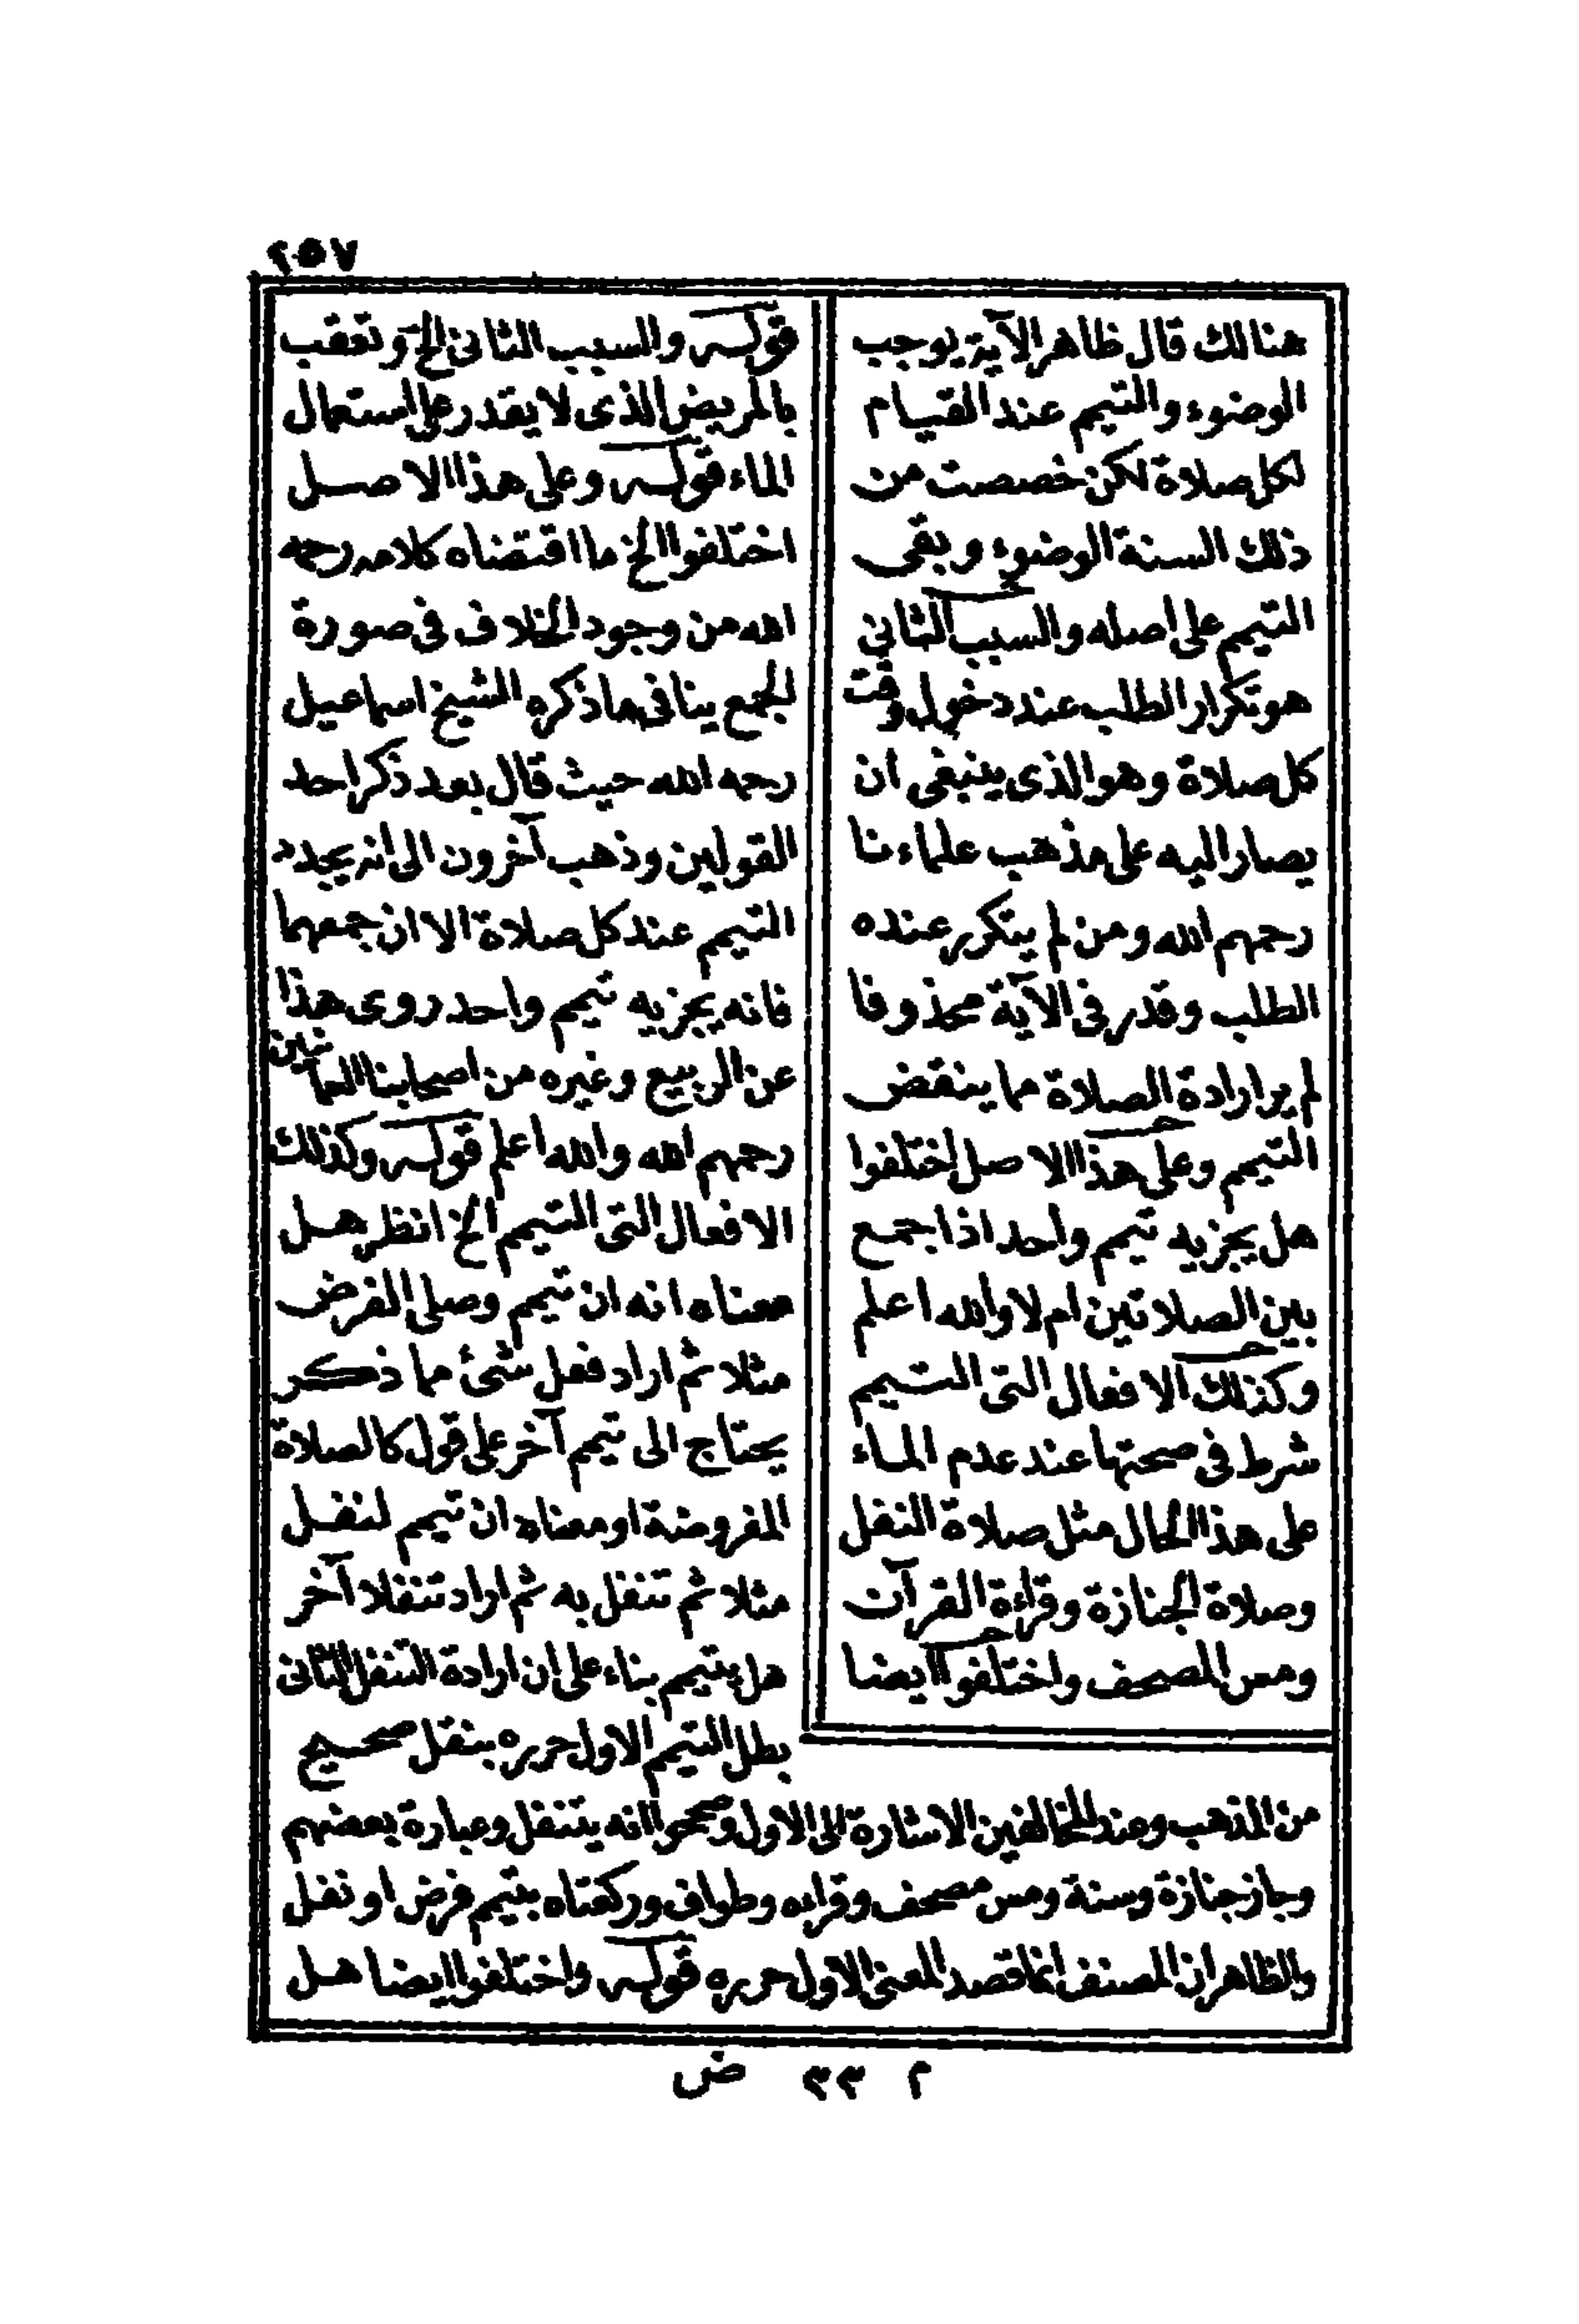 ٢٥٧
هنالك قال ظاهر الآية يوجب
الوضوء والتيمم عند القيام
لكل صلاة لكن خصصت من
ذلك السنة الوضوء وبقى
التيمم على اصله والسبب الثانى
هو تكرار الطلب عند دخول وقت
كل صلاة وهو الذى ينبغى ان
يصار اليه على مذهب علماءنا
رحمهم الله ومن لم يتكرر عنده
الطلب وقدر فى الآية محذوفا
لم ير ارادة الصلاة مما ينقض
التيمم وعلى هذا الاصل اختلفوا
هل يجزيه تيمم واحد اذا جمع
بين الصلاتين ام لا والله اعلم
وكذلك الافعال التى التيمم
شرط فى صحتها عند عدم الماء
على هذا الحال مثل صلاة النفل
وصلاة الجنازة وقراءة القرآن
ومس المصحف واختلفوا ايضا
قوله والسبب الثانى الخ وتعقب
بالمريض الذى لا يقدر على استعمال
الماء قوله وعلى هذا الاصل
اختلفوا الخ ما اقتضاه كلامه رحمه
الله من وجود الخلاف فى صورة
الجمع ينافى ما ذكره الشيخ اسماعيل
رحمه الله حيث قال بعد ذكر احد
القولين وذهب آخرون الى انه يجدد
التيمم عند كل صلاة الا ان جمعهما
فانه يجزيه تيمم واحد روى هذا
عن الربيع وغيره من اصحابنا العمانيين
رحمهم الله والله اعلم قوله وكذلك
الافعال التى التيمم الخ انظر هل
معناه انه ان تيمم وصلى الفرض
مثلا ثم اراد فعل شئ مما ذكر
يحتاج الى تيمم آخر على قول كالصلاة
المفروضة او معناه ان تيمم لنفل
مثلا ثم تنفل به ثم اراد تنفلا آخر
هل يتيمم بناء على ان ارادة التنفل الثانى
بطل التيمم الاول حرره بنقل صحيح
من المذهب وعند المخالفين الاشارة الى الاول وصححوا انه يتنفل وعبارة بعضهم
وجاز جنازة وسنة ومس مصحف وقراءه وطواف وركعتاه بتيمم فرض او نفل
والظاهر ان المصنف انما قصد المعنى الاول حرره قوله واختلفوا ايضا هل
م ٣٣ ض